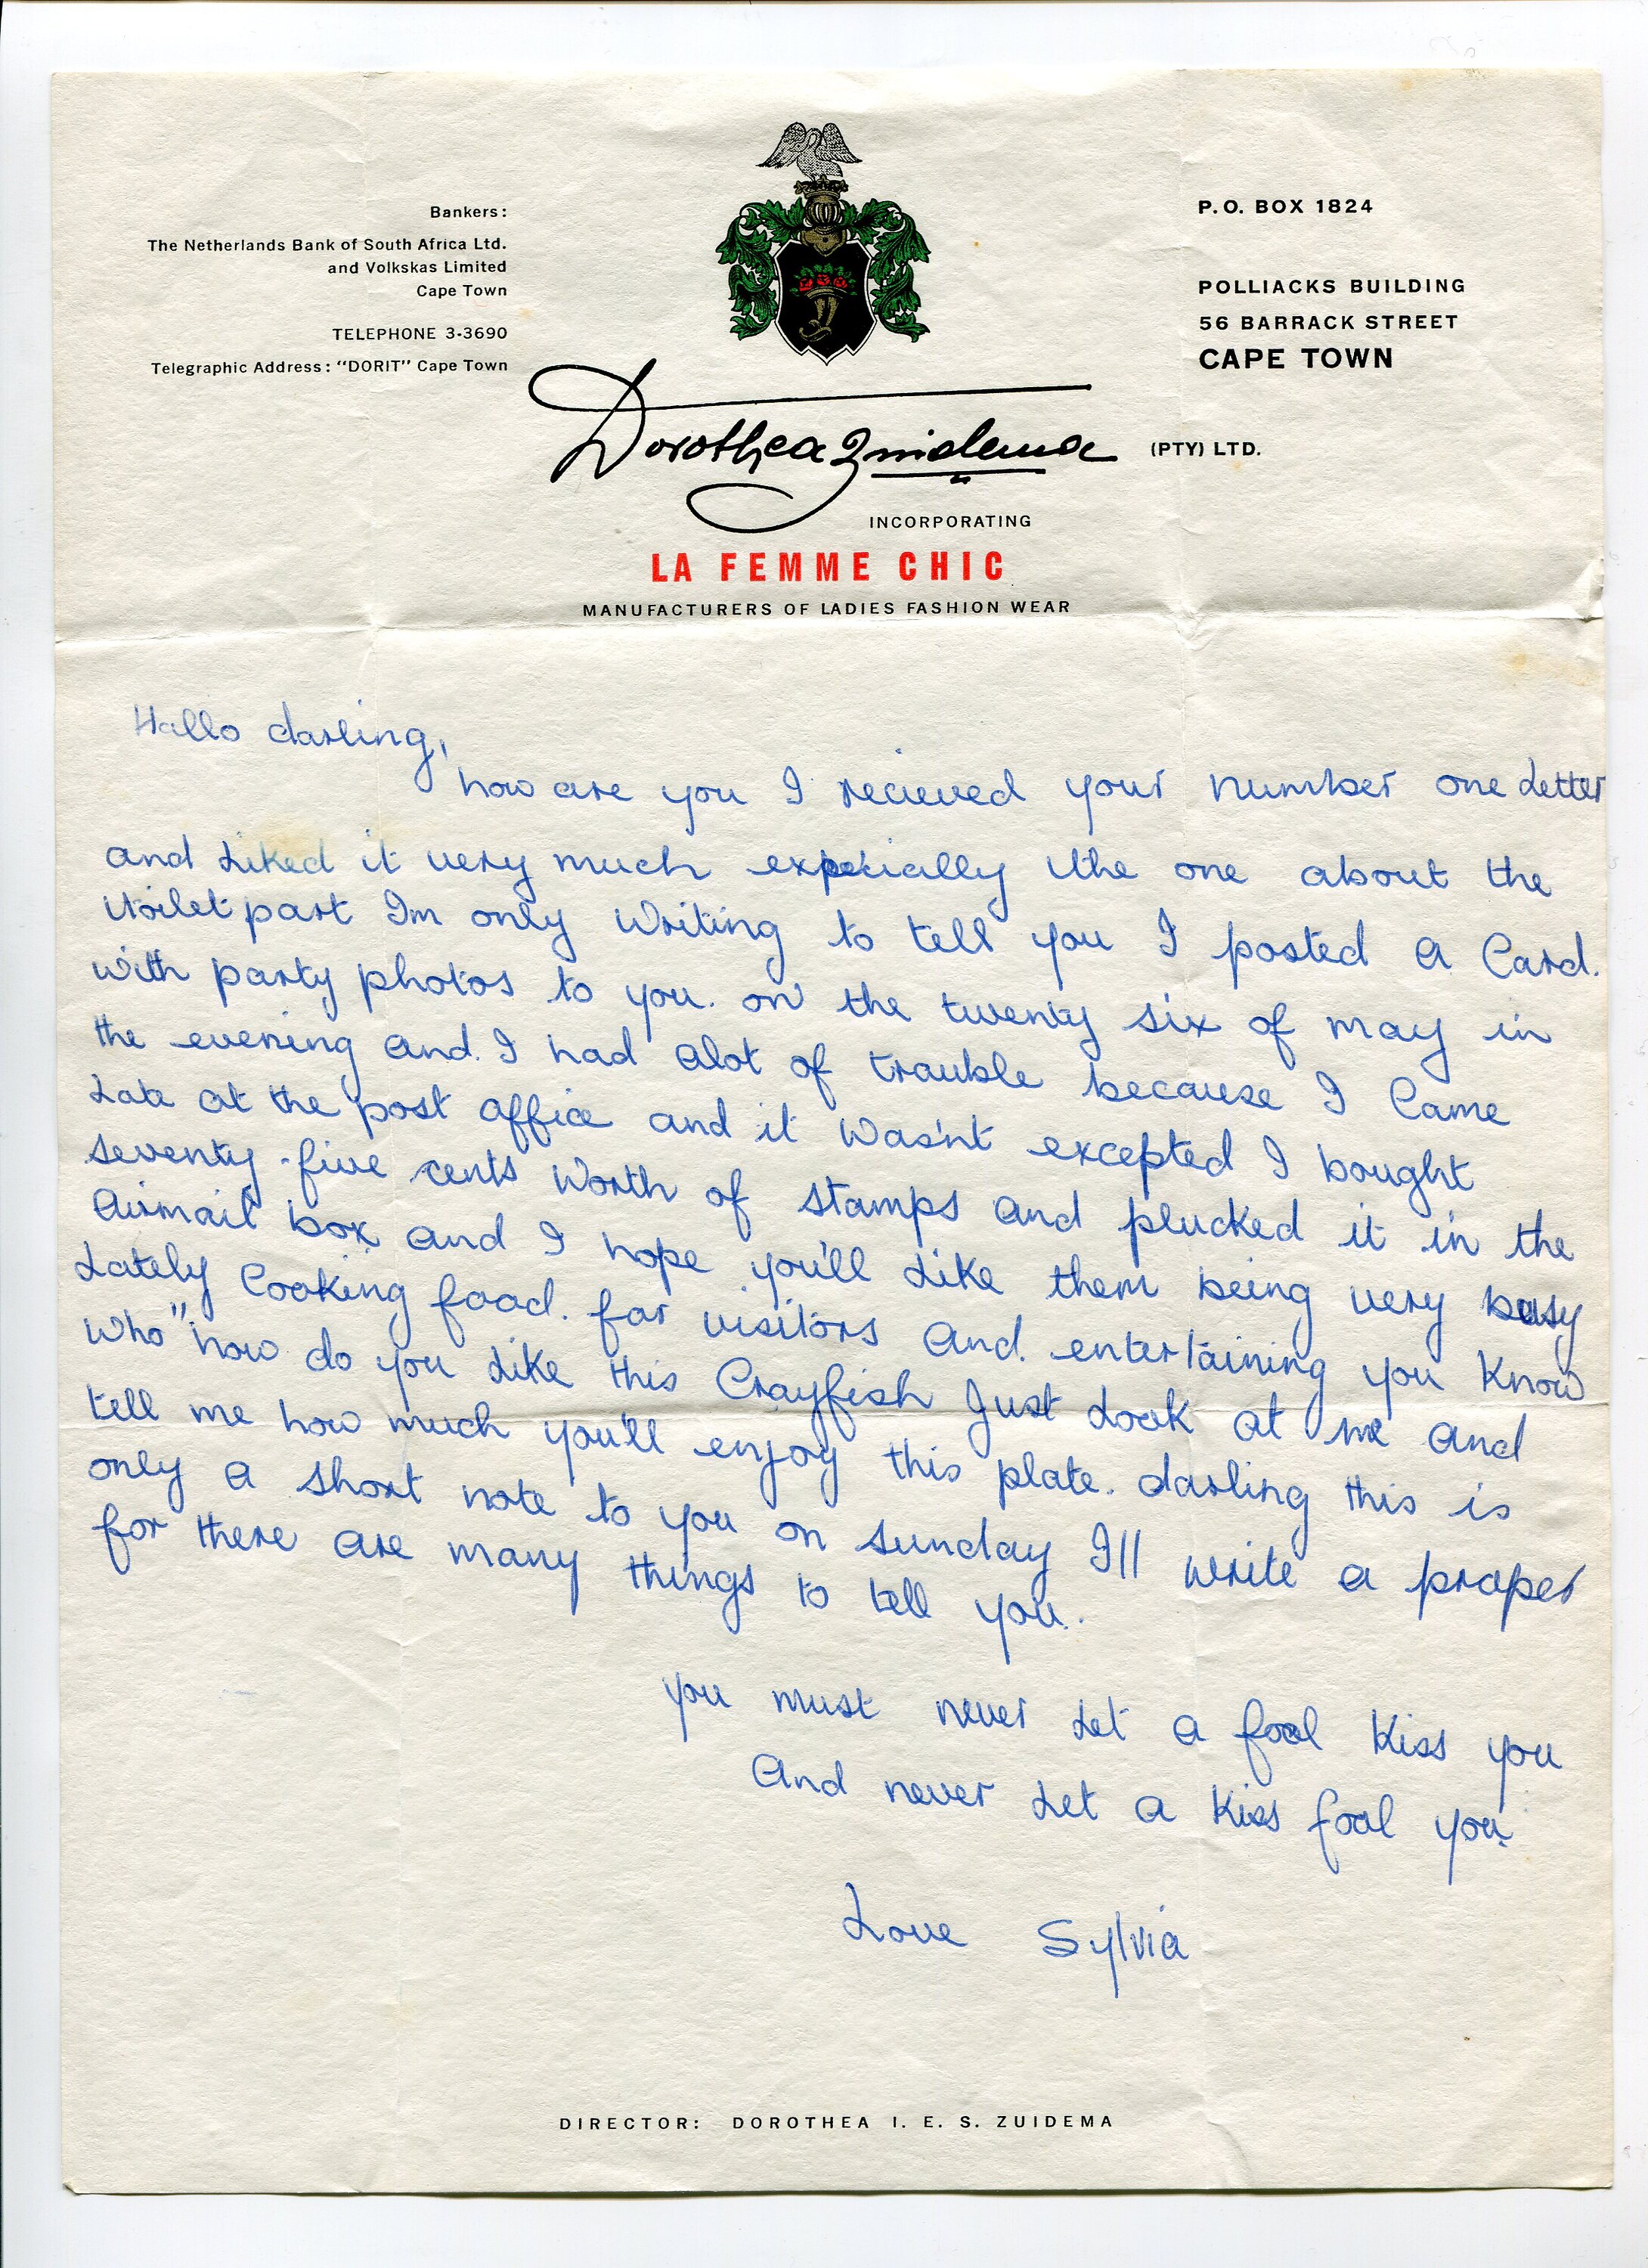 Bankers:
The Netherlands Bank of South Africa Ltd.
and Volkskas Limited
Cape Town
TELEPHONE 3-3690
Telegraphic Address: "DORIT" Cape Town
P.O. BOX 1824
POLLIACKS BUILDING
56 BARRACK STREET
CAPE TOWN
Dorothea Zuidema (PTY) LTD.
INCORPORATING
LA FEMME CHIC
MANUFACTURERS OF LADIES FASHION WEAR
Hallo darling,
how are you I recieved your number one Letter
and Liked it very much expecially the one about the
toilet part Im only writing to tell you I posted a Card.
with party photos to you. on the twenty six of may in
the evening and. I had alot of trauble because I Came
Late at the post office and it wasn't excepted I bought
seventy-five cents worth of stamps and plucked it in the
Airmail box and I hope you'll Like them being very busy
Lately Cooking food. for visitors and. entertaining you Know
who" how do you Like this Crayfish Just Look at me and
tell me how much you'll enjoy this plate. darling this is
only a short note to you on sunday I'll write a proper
for there are many things to tell you.
you must never Let a fool Kiss you
And never Let a Kiss fool you.
Love Sylvia
DIRECTOR: DOROTHEA I. E. S. ZUIDEMA